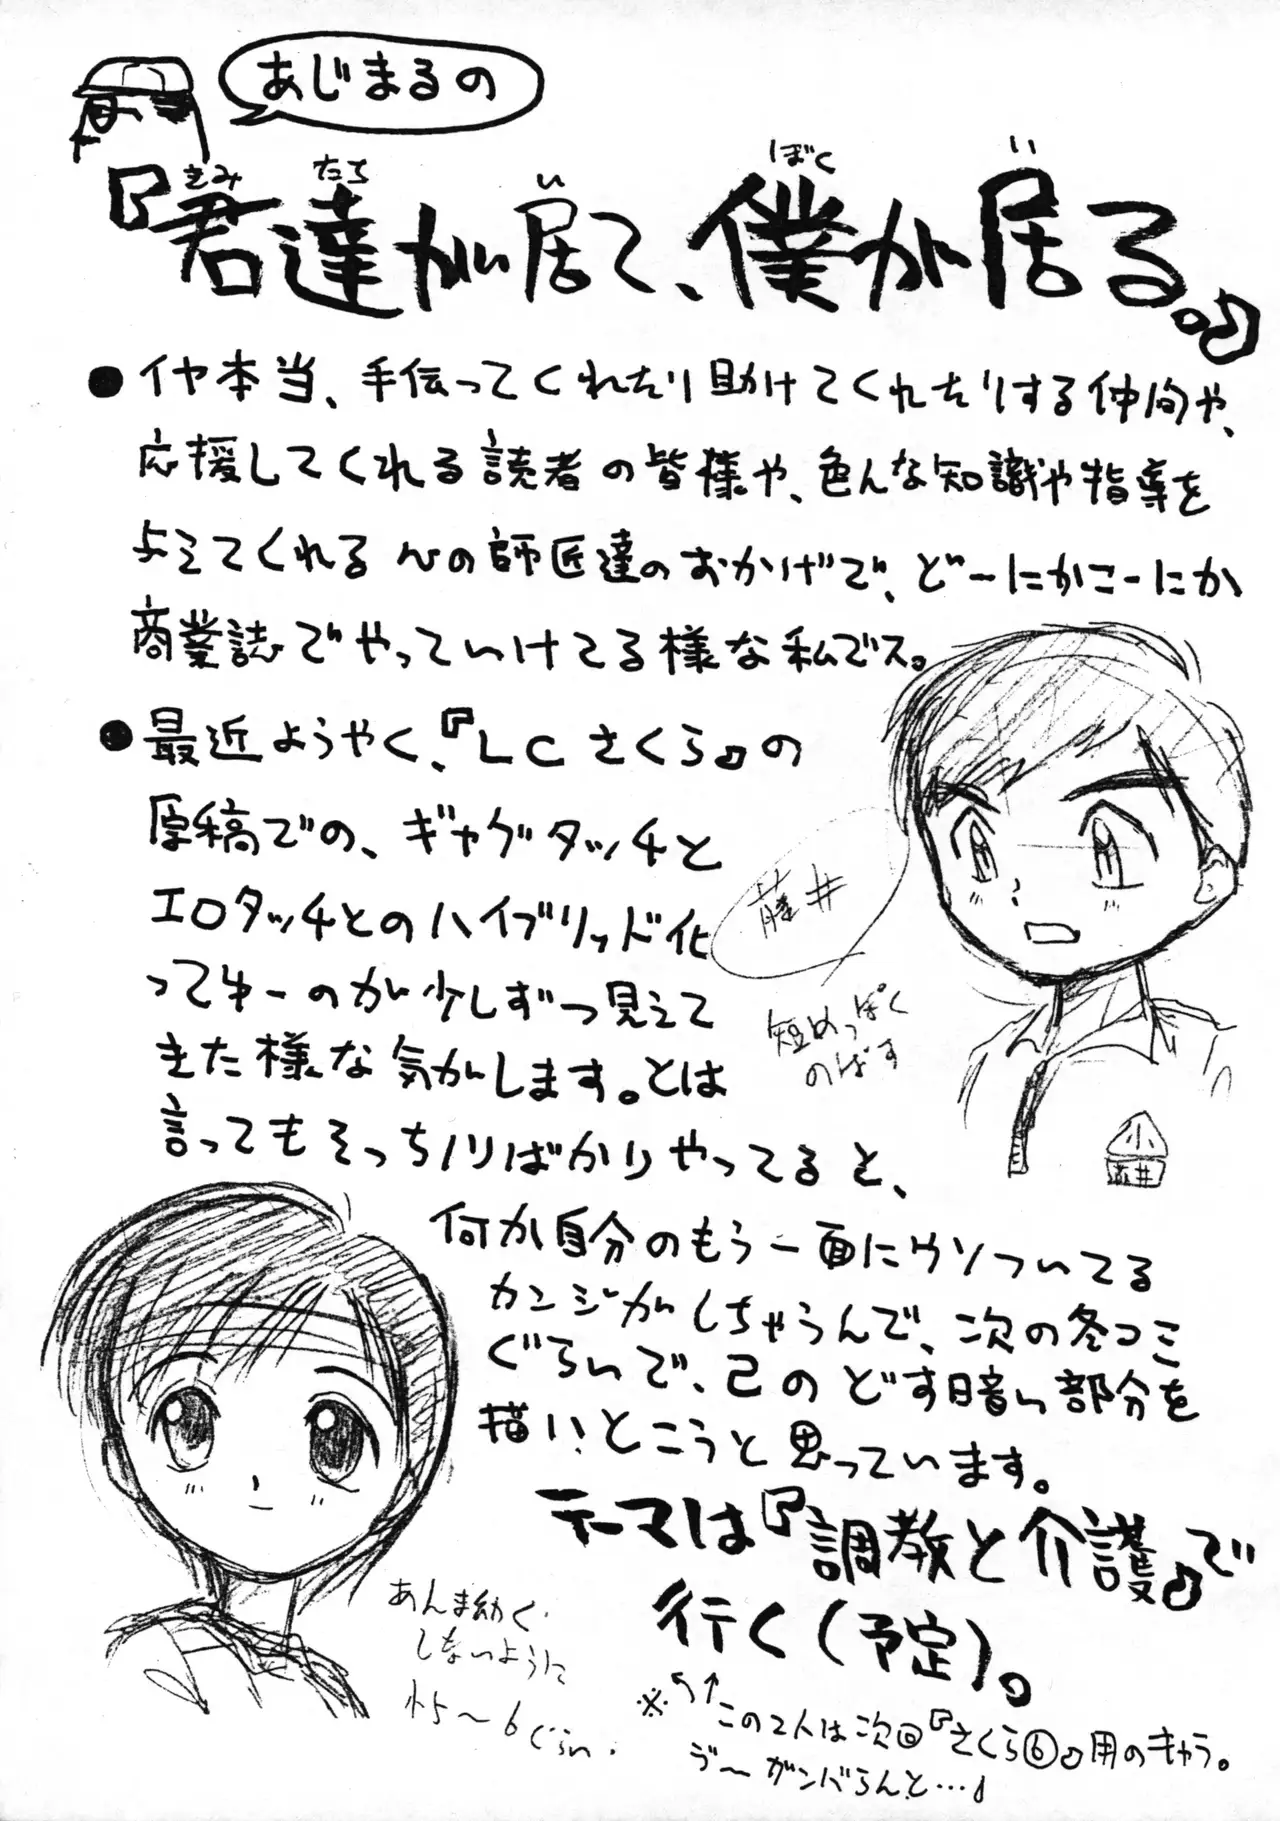 あじまるの
『君達が居て、僕が居る。』
きみ たち い ぼく い
●イヤ本当、手伝ってくれたり助けてくれたりする仲間や、
応援してくれる読者の皆様や、色んな知識や指導を
よえてくれる心の師匠達のおかげで、どーにかこーにか
商業誌でやっていけてる様な私でス。
●最近ようやく、『LCさくら』の
原稿での、ギャグタッチと
エロタッチとのハイブリッド化
ってゆーのが少しずつ見えて
きた様な気がします。とは
言ってもそっちノリばかりやってると、
何か自分のもう一面にウソついてる
カンジがしちゃうんで、次の冬コミ
ぐらいで、己のどす暗い部分を
描いとこうと思っています。
テーマは『調教と介護』で
行く(予定)。
※↖↑この2人は次回『さくら⑥』用のキャラ。
ゔ〜ガンバらんと…♩
藤井
短めっぽく
のばす
小
あんま幼く
しないように
小5〜6ぐらい.